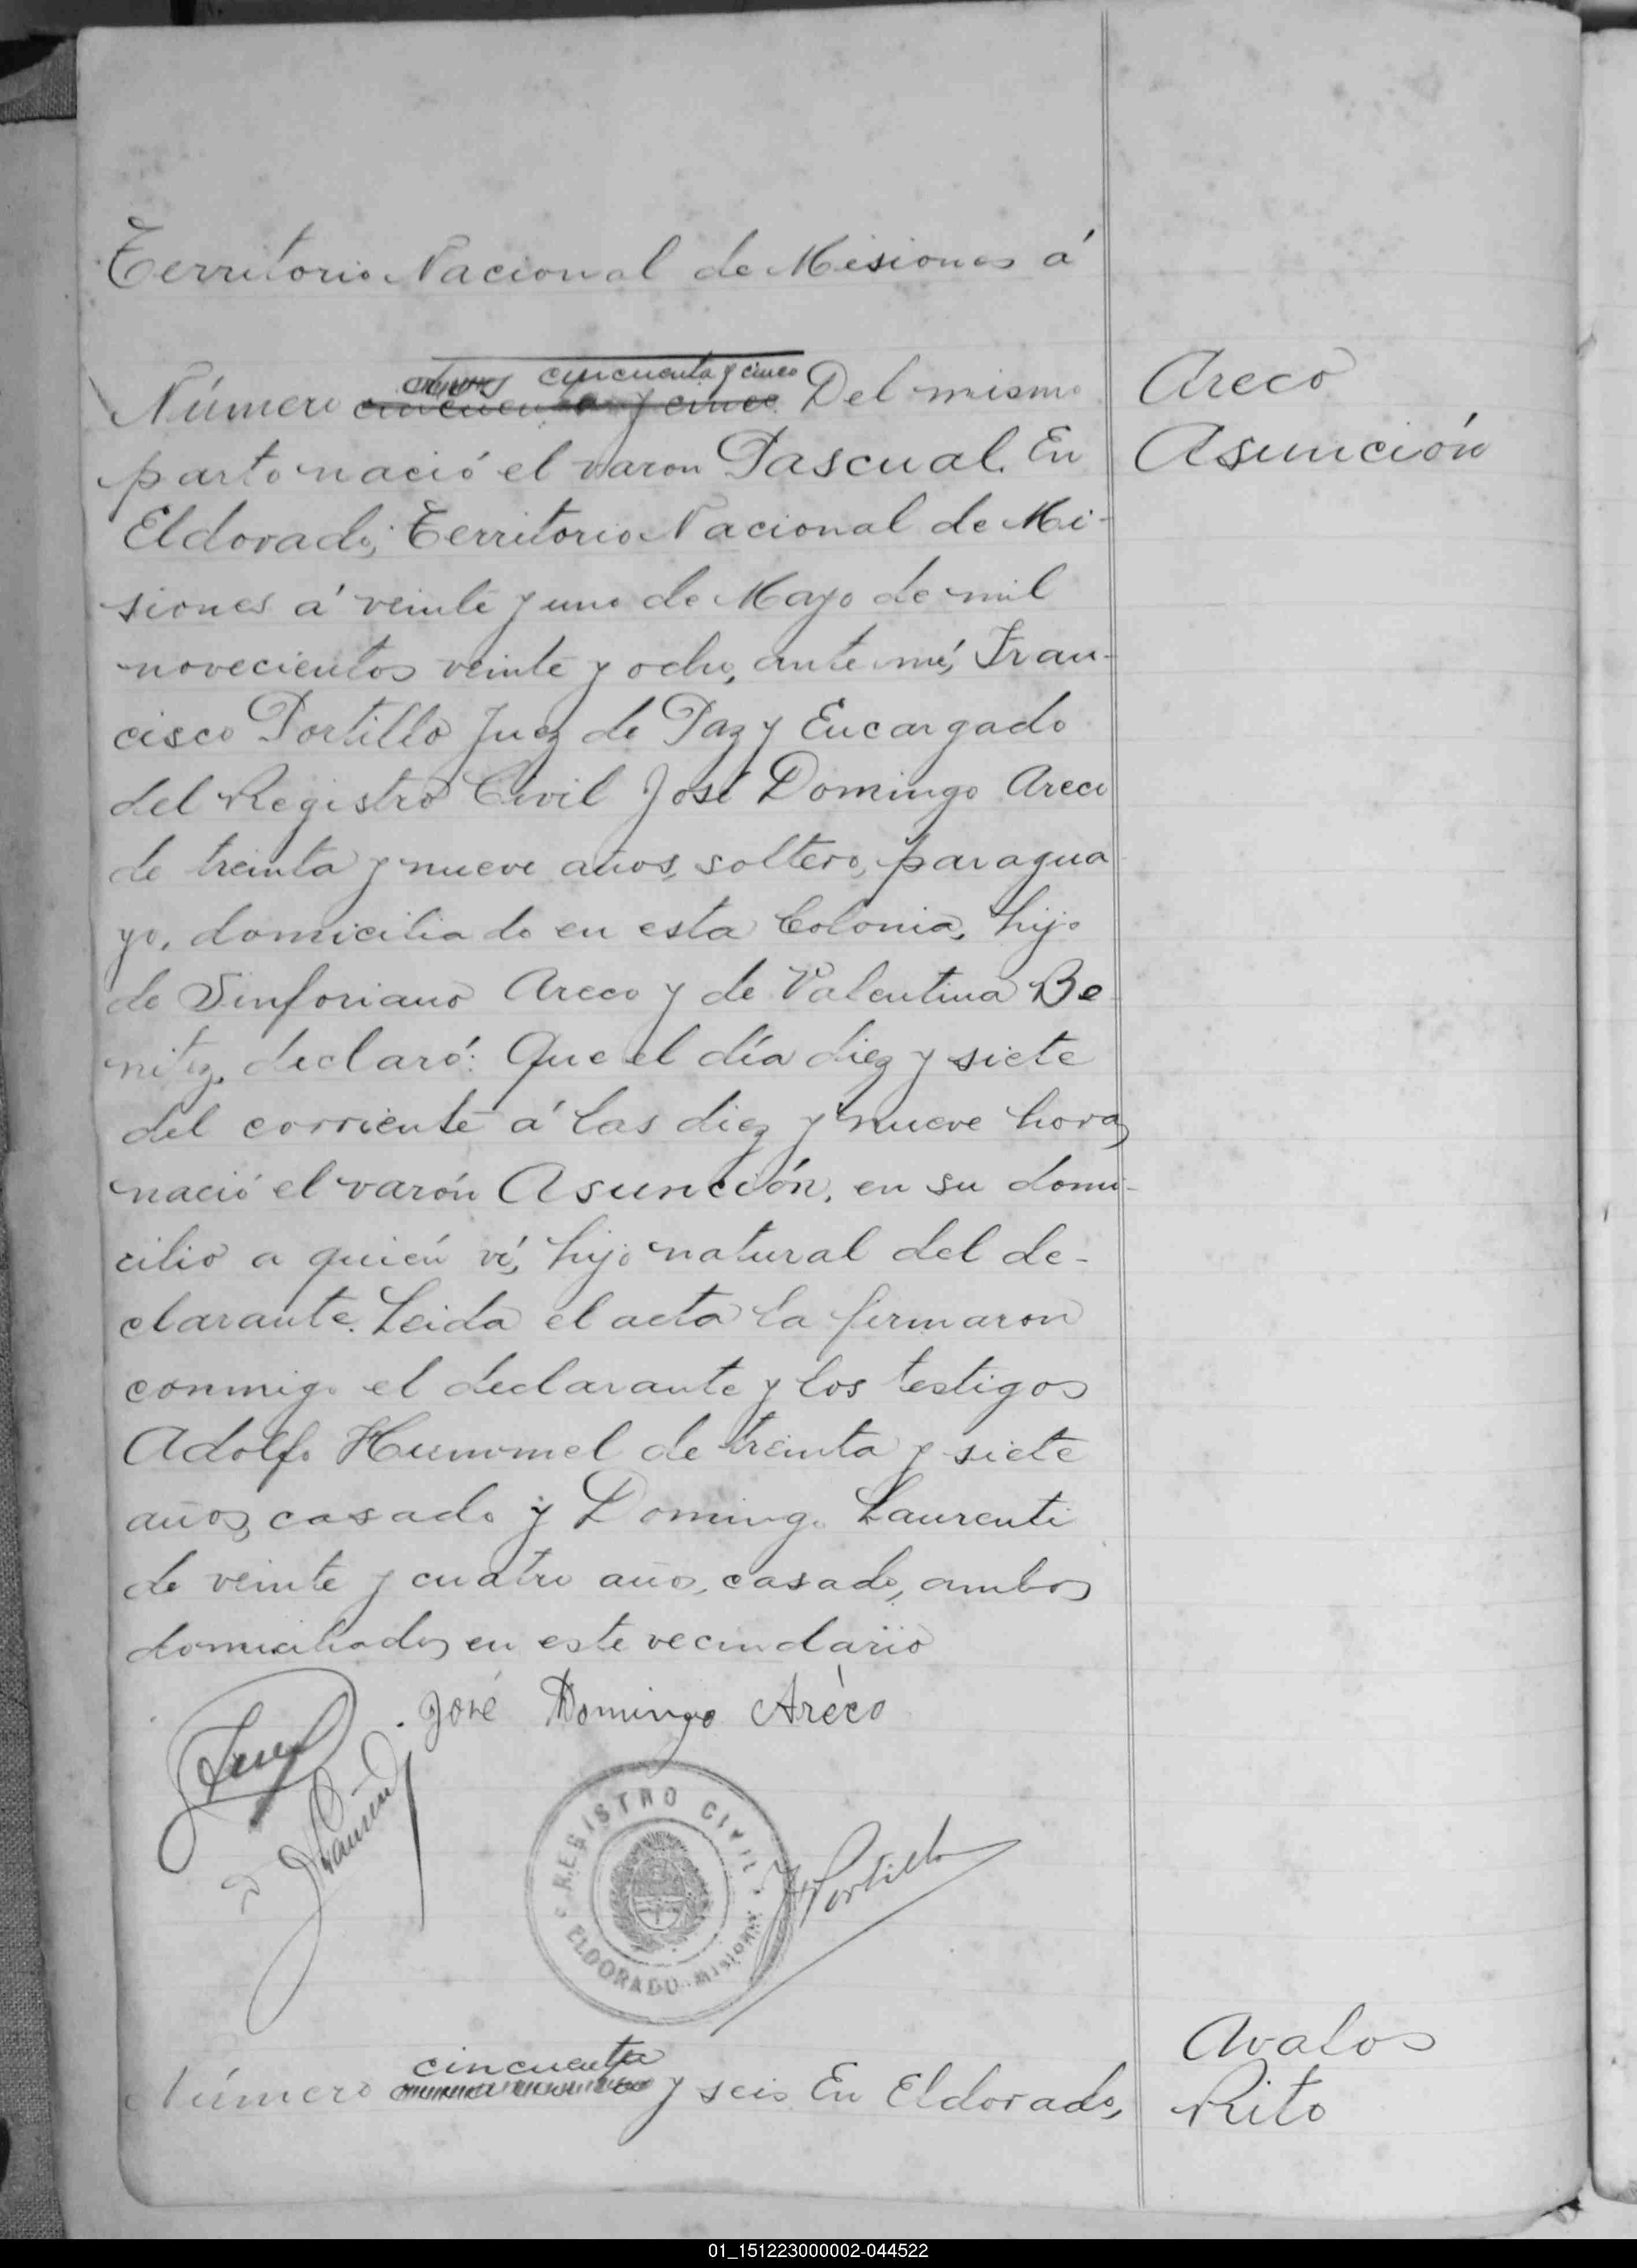 Territorio Nacional de Misiones á
cincuenta y cinco
Número cincuenta y cinco. Del mismo
parto nació el varon Pascual. En
Eldorado, Territorio Nacional de Mi-
siones á veinte y uno de Mayo de mil
novecientos veinte y ocho, ante mí, Fran-
cisco Portillo Juez de Paz y Encargado
del Registro Civil José Domingo Areco
de treinta y nueve años, soltero, paragua
yo, domiciliado en esta Colonia, hijo
de Sinforiano Areco y de Valentina Be
nitez, declaró: Que el día diez y siete
del corriente á las diez y nueve horas
nació el varón Asunción, en su domi-
cilio a quién ví, hijo natural del de-
clarante. Leida el acta la firmaron
conmigo el declarante y los testigos
Adolfo Hummel de treinta y siete
años, casado y Domingo Laurenti
de veinte y cuatro años, casado, ambos
domiciliados en este vecindario
José Domingo Aréco
REGISTRO CIVIL
ELDORADO - MISIONES
F Portillo
cincuenta
Número y seis En Eldorado,
Areco
Asunción
Avalos
Rito
01_151223000002-044522